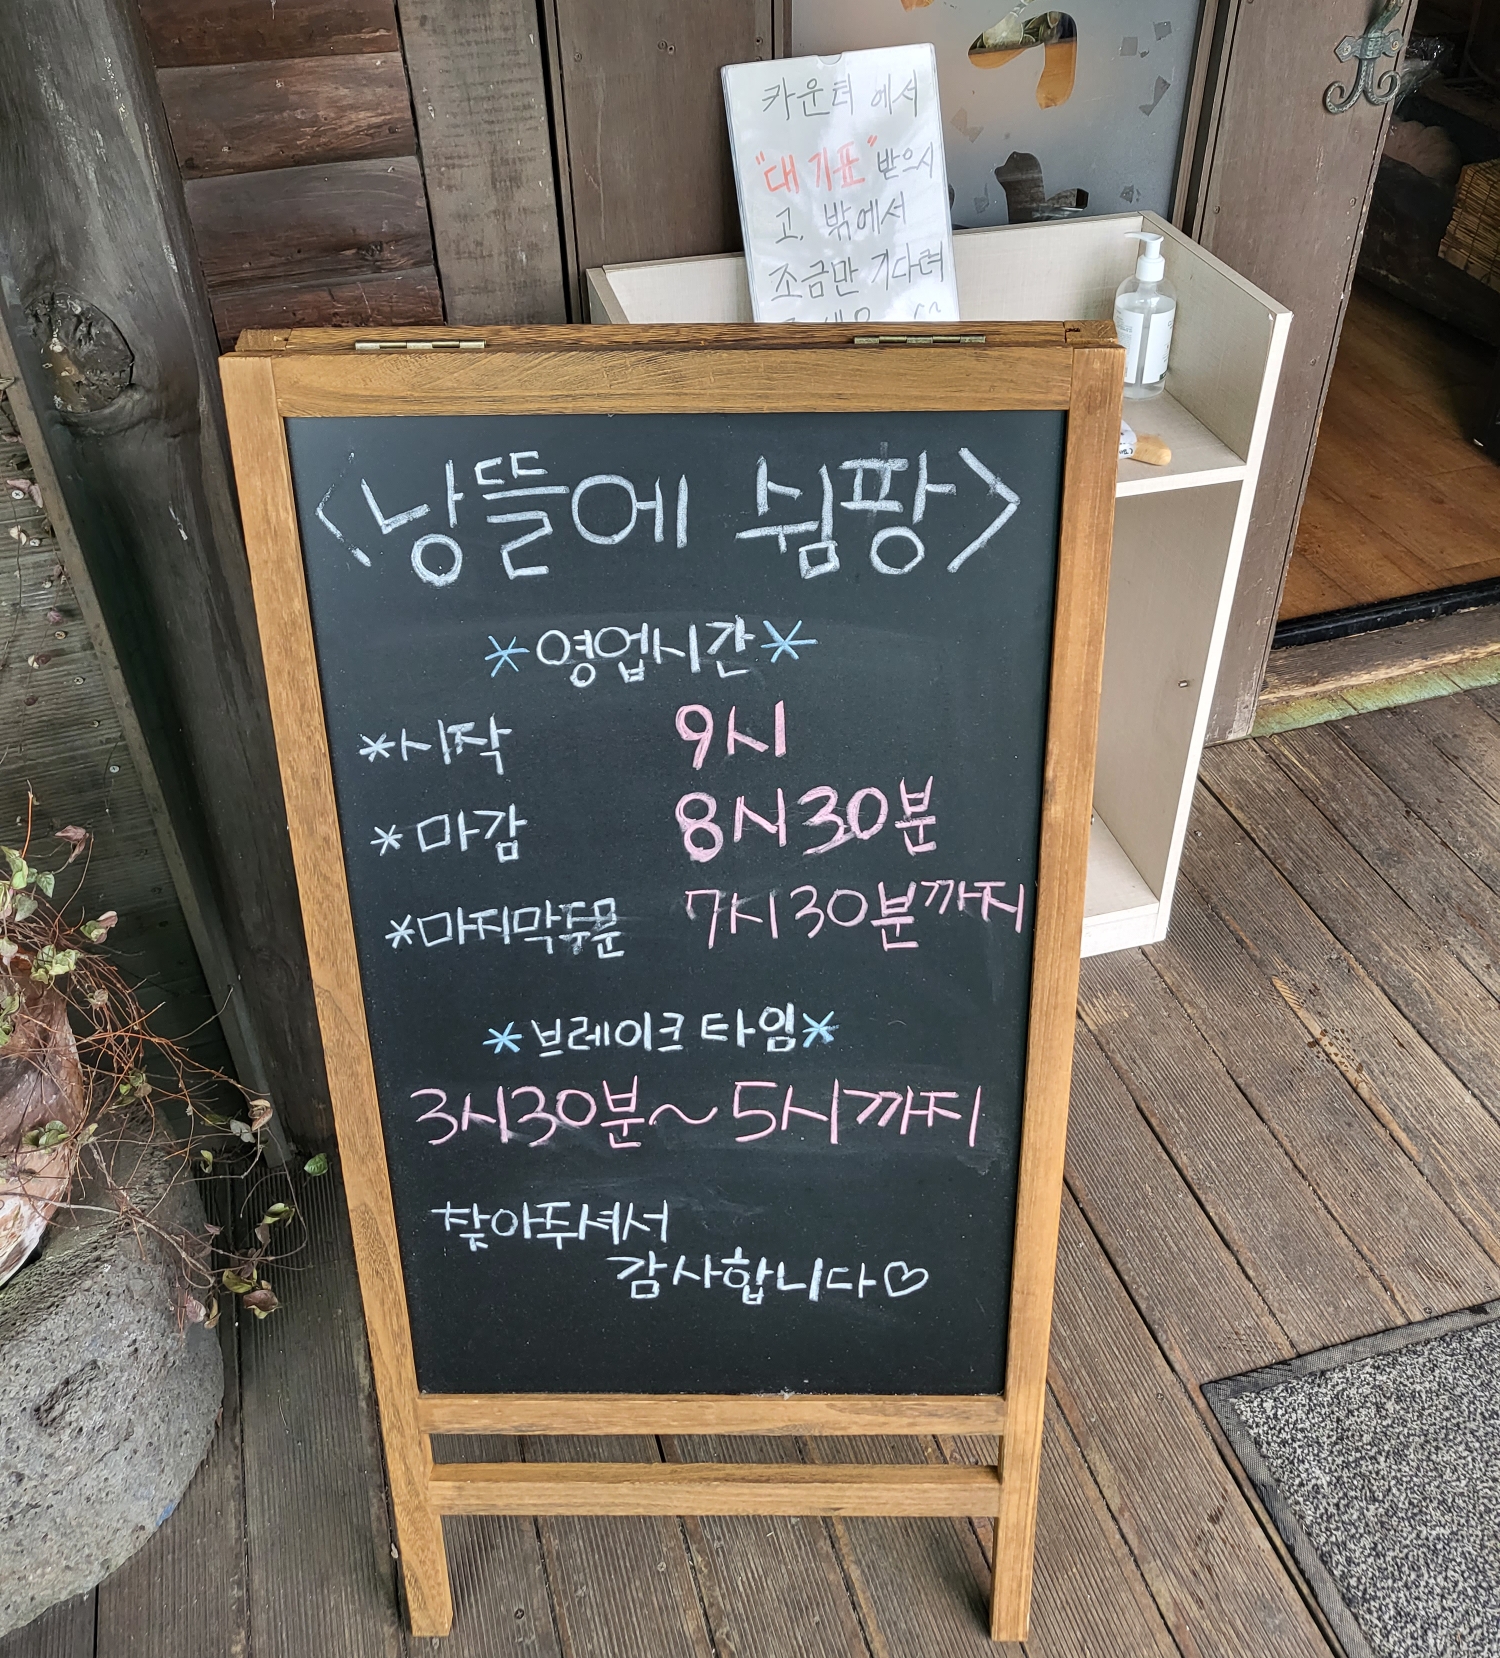 카운터에서
"대기표" 받으시
고, 밖에서
조금만 기다려
<낭뜰에 쉼팡>
*영업시간*
*시작 9시
*마감 8시30분
*마지막주문 7시30분까지
*브레이크 타임*
3시30분~5시까지
찾아주셔서
감사합니다♡